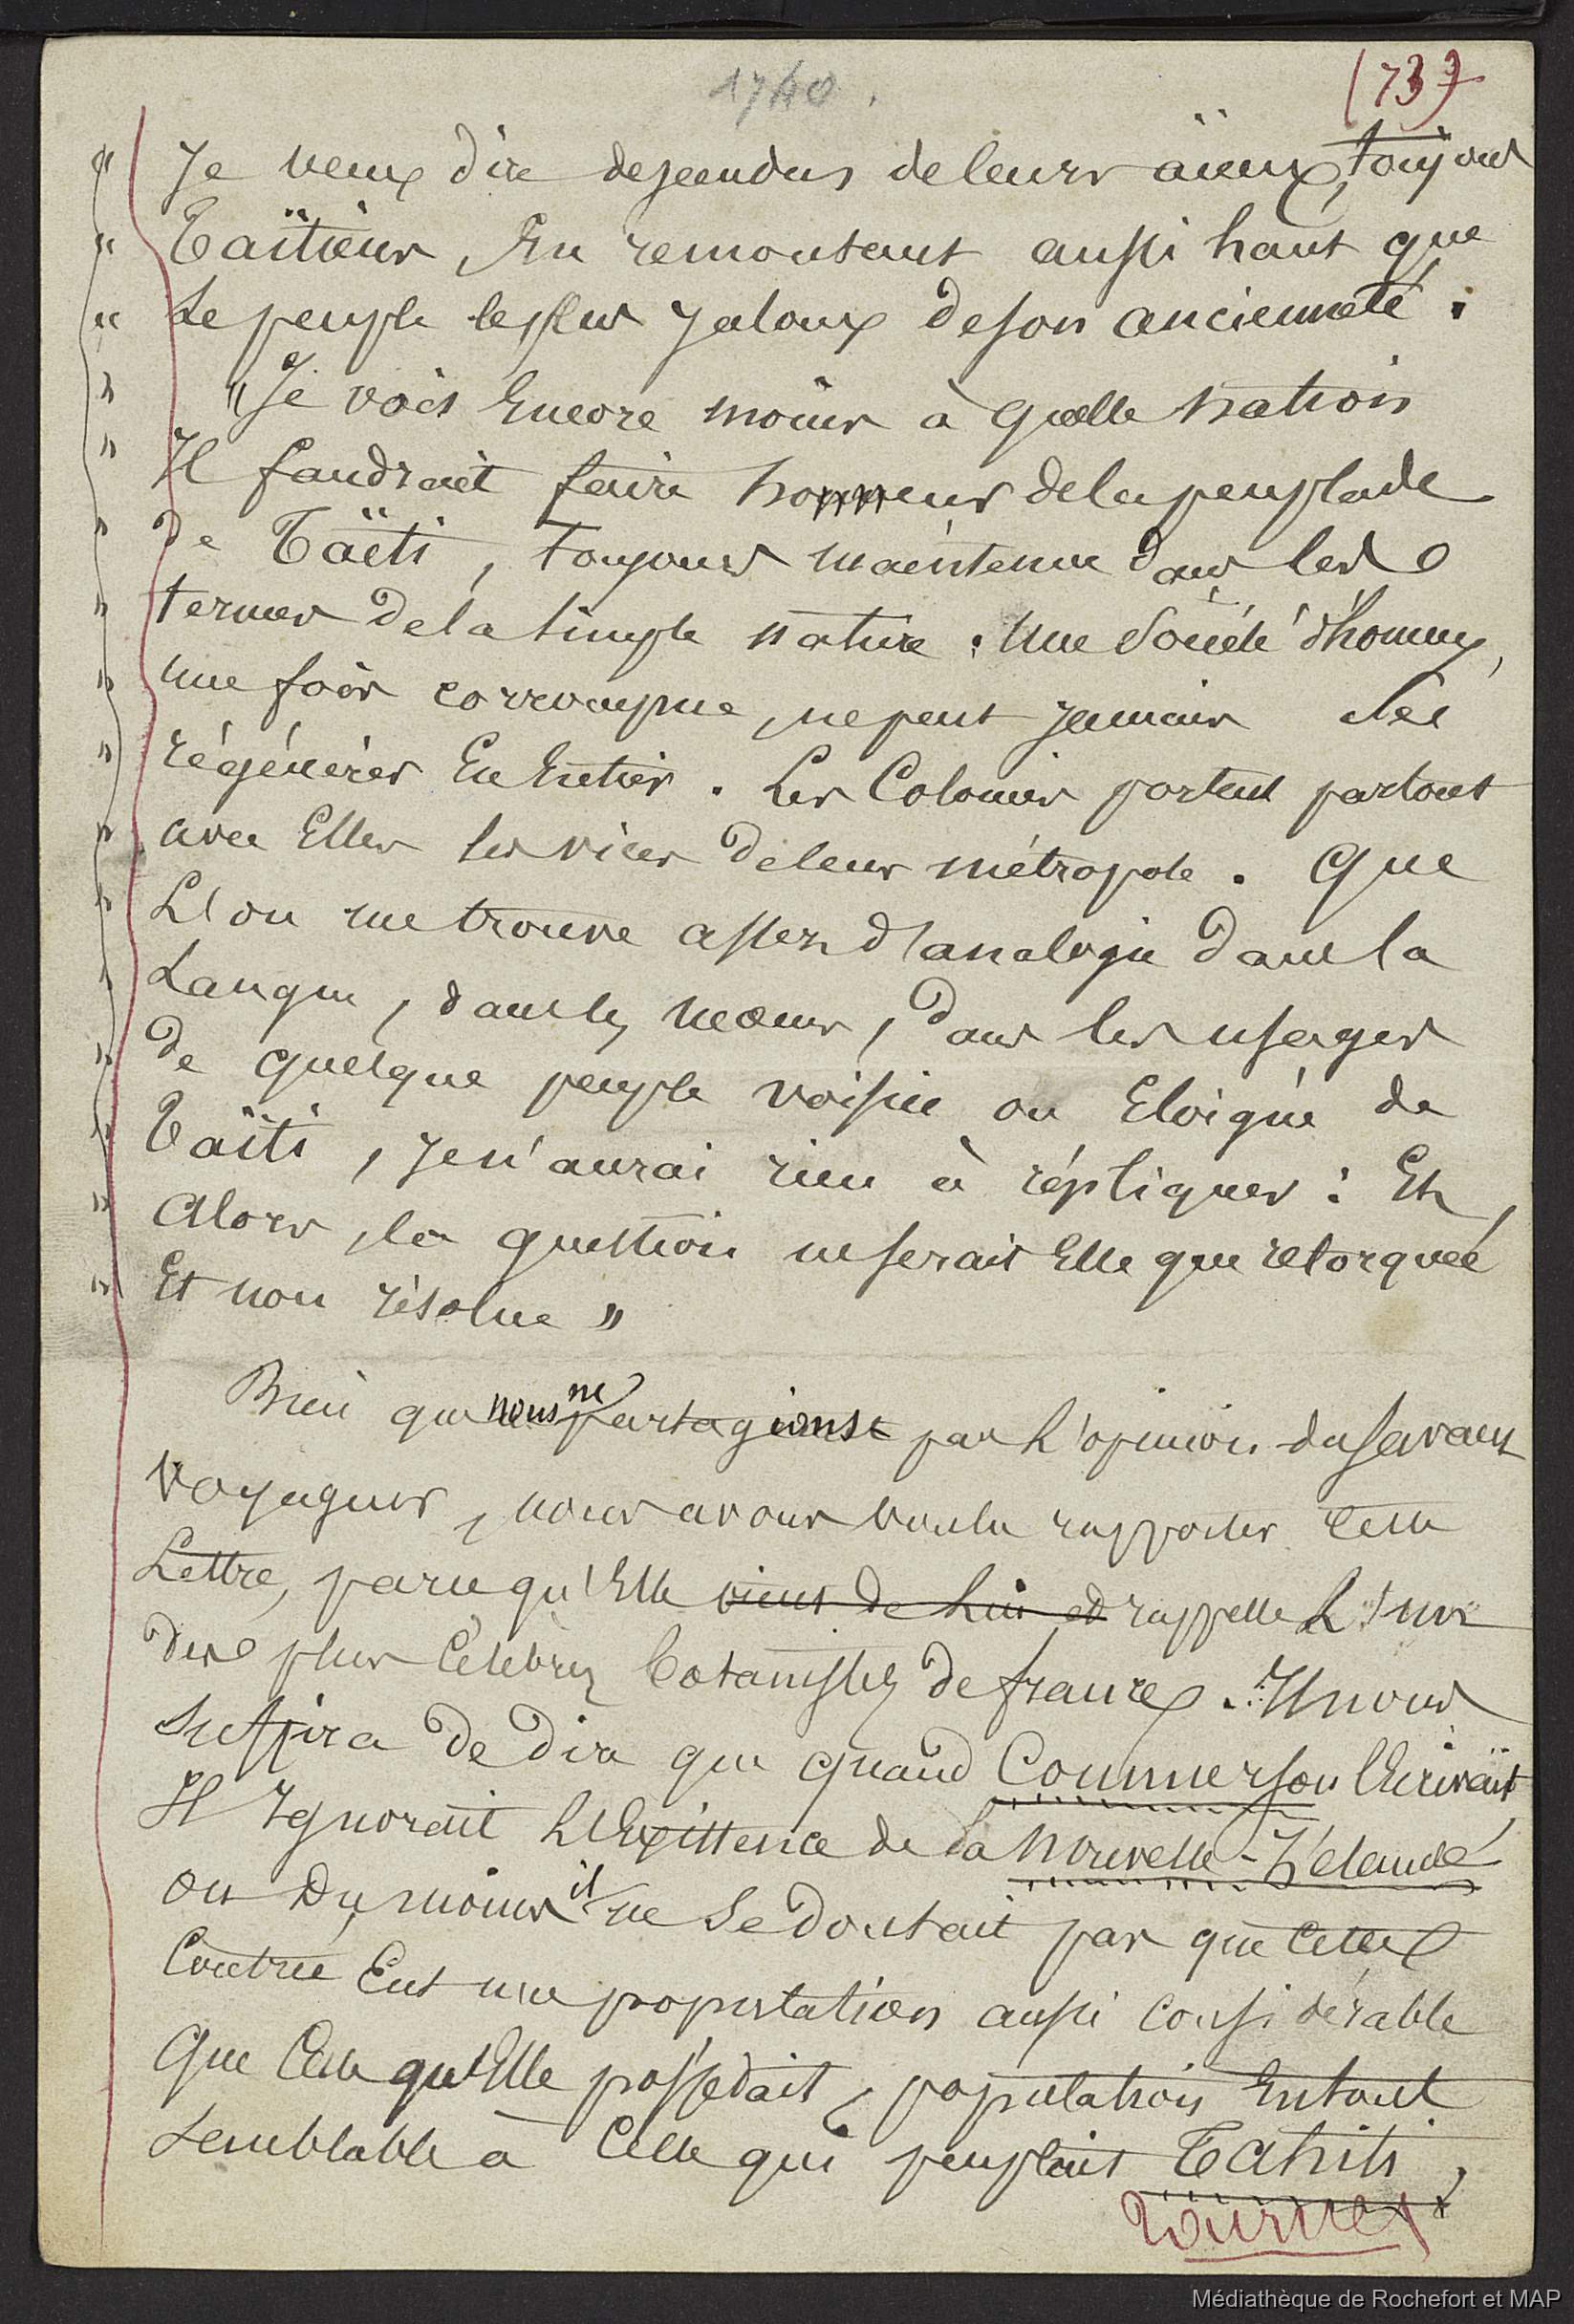 1740.
(73)
" Je veux dire descendus de leurs aïeux, toujours
" Taïtiens, En remontant aussi haut que
" Le peuple le plus Jaloux de son ancienneté.
" "Je vois Encore moins à Quelle nation
" Il faudrait faire honneur de la peuplade
" de Taïti, Toujours maintenue dans les
" termes de la simple nature. Une Société d'hommes,
" une fois corrompue, ne peut Jamais Se
" régénérer En Entier. Les Colonies portent partout
" avec Elles les vices de leur métropole. Que
" L'on me trouve assez d'analogie dans la
" Langue, dans les mœurs, dans les usages
" de quelque peuple voisin ou Eloigné de
" Taïti, Je n'aurai rien à répliquer: Et,
" Alors, la question ne serait Elle que retorquée
" Et non résolue "
Bien que nous ne partagions pas L'opinion du savant
voyageur, nous avons voulu rapporter cette
Lettre, parce qu'Elle vient de Lui et rappelle L'un
des plus Célèbres botanistes de france. Il nous
Suffira de dire que quand Commerson L'écrivait,
Il Ignorait L'Existence de La Nouvelle-Zélande
ou Du moins il ne Se doutait pas que cette
Contrée Eut une population aussi considérable
Que Celle qu'Elle possédait, population En tout
Semblable à Celle qui peuplait Tahiti,
Tournez
Médiathèque de Rochefort et MAP